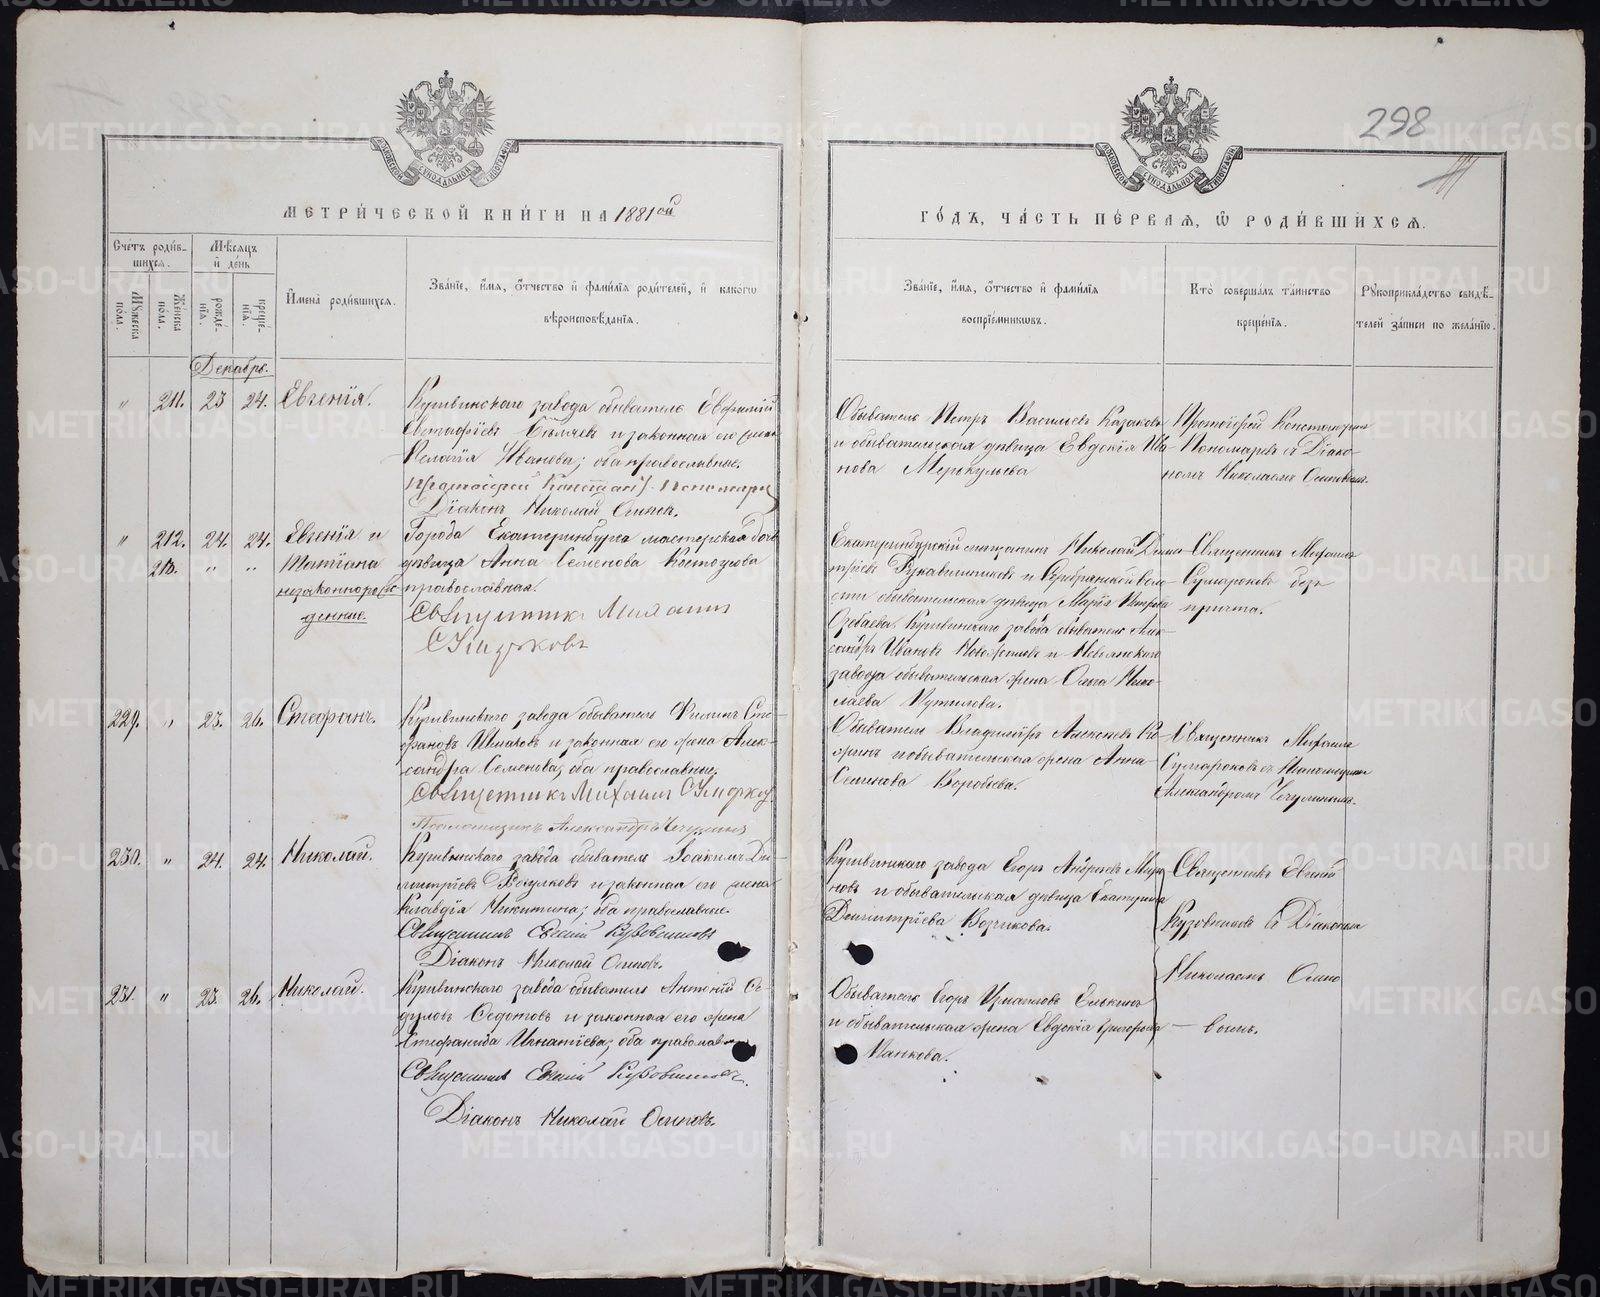 298
МЕТРИ́ЧЕСКОЙ КНИ́ГИ НА 1881 ой
ГО́ДЪ, ЧА́СТЬ ПЕ́РВАЯ, Ѽ РОДИ́ВШИХСЯ.
Сче́тъ роди́в-
шихся.
Мѣ́сяцъ
и҆ де́нь
Му́жеска по́ла.
Же́нска по́ла.
рожде́-
нїя.
креще́-
нїя.
И҆мена̀ роди́вшихся.
Зва́нїе, и҆́мя, ѻ҆́тчество и҆ фами́лїя роди́телей, и҆ како́гѡ
вѣроисповѣ́данїя.
Зва́нїе, и҆́мя, ѻ҆́тчество и҆ фами́лїя
воспрїе́мникѡвъ.
Кто̀ соверша́лъ та́инство
креще́нїя.
Рꙋкоприкла́дство свидѣ́-
телей за́писи по жела́нїю.
Декабрь.
" 211. 23 24. Евгенія.
Кушвинскаго завода обыватель Евфимій
Евстафіевъ Бѣляевъ и законная его жена
Пелагія Иванова; оба православные.
Протоіерей Констант. Пономаревъ
Діаконъ Николай Осиповъ.
Обыватель Петръ Васильевъ Казаковъ
и обывательская дѣвица Евдокія Ива-
нова Меркульева
Протоіерей Константинъ
Пономаревъ съ Діако-
номъ Николаемъ Осиповымъ.
" 212. 24. 24. Евгенія и
213. " " Татіана
незаконнорож-
денные.
Города Екатеринбурга мастерская дочь
дѣвица Анна Семенова
православная.
Священникъ Михаилъ
Сумароковъ
Екатеринбургскій мѣщанинъ Николай Дими-
тріевъ Рукавишниковъ и Серебрянской воло-
сти обывательская дѣвица Марія Петрова
Кушвинскаго завода обыватель Алек-
сандръ Ивановъ и Невьянскаго
завода обывательская жена Ольга Нико-
лаева Путилова.
Священникъ Михаилъ
Сумароковъ безъ
причта.
229. " 23. 26. Стефанъ.
Кушвинскаго завода обыватель Филипъ Сте-
фановъ Шмаковъ и законная его жена Алек-
сандра Семенова; оба православные.
Священникъ Михаилъ Сумароковъ
Псаломщикъ Александръ Чечулинъ
Обыватель Владиміръ Алексѣевъ Ко-
жинъ и обывательская жена Анна
Семенова Воробьева.
Священникъ Михаилъ
Сумароковъ съ Псаломщикомъ
Александромъ Чечулинымъ.
230. " 24. 24. Николай.
Кушвинскаго завода обыватель Іоакимъ Ди-
митріевъ и законная его жена
Клавдія Никитина; оба православные.
Священникъ Евгеній Кузовниковъ
Діаконъ Николай Осиповъ.
Кушвинскаго завода Егоръ Андреевъ Миро-
новъ и обывательская дѣвица Екатерина
Димитріева Возчикова.
Священникъ Евгеній
Кузовниковъ съ Діакономъ
Николаемъ Осипо-
вымъ.
231. " 25. 26. Николай.
Кушвинскаго завода обыватель Антоній
Ѳедотовъ и законная его жена
Стефанида Игнатіева; оба православные
Священникъ Евгеній Кузовниковъ.
Діаконъ Николай Осиповъ.
Обыватель Егоръ Измаиловъ Елькинъ
и обывательская жена Евдокія Григорьева
Малкова.